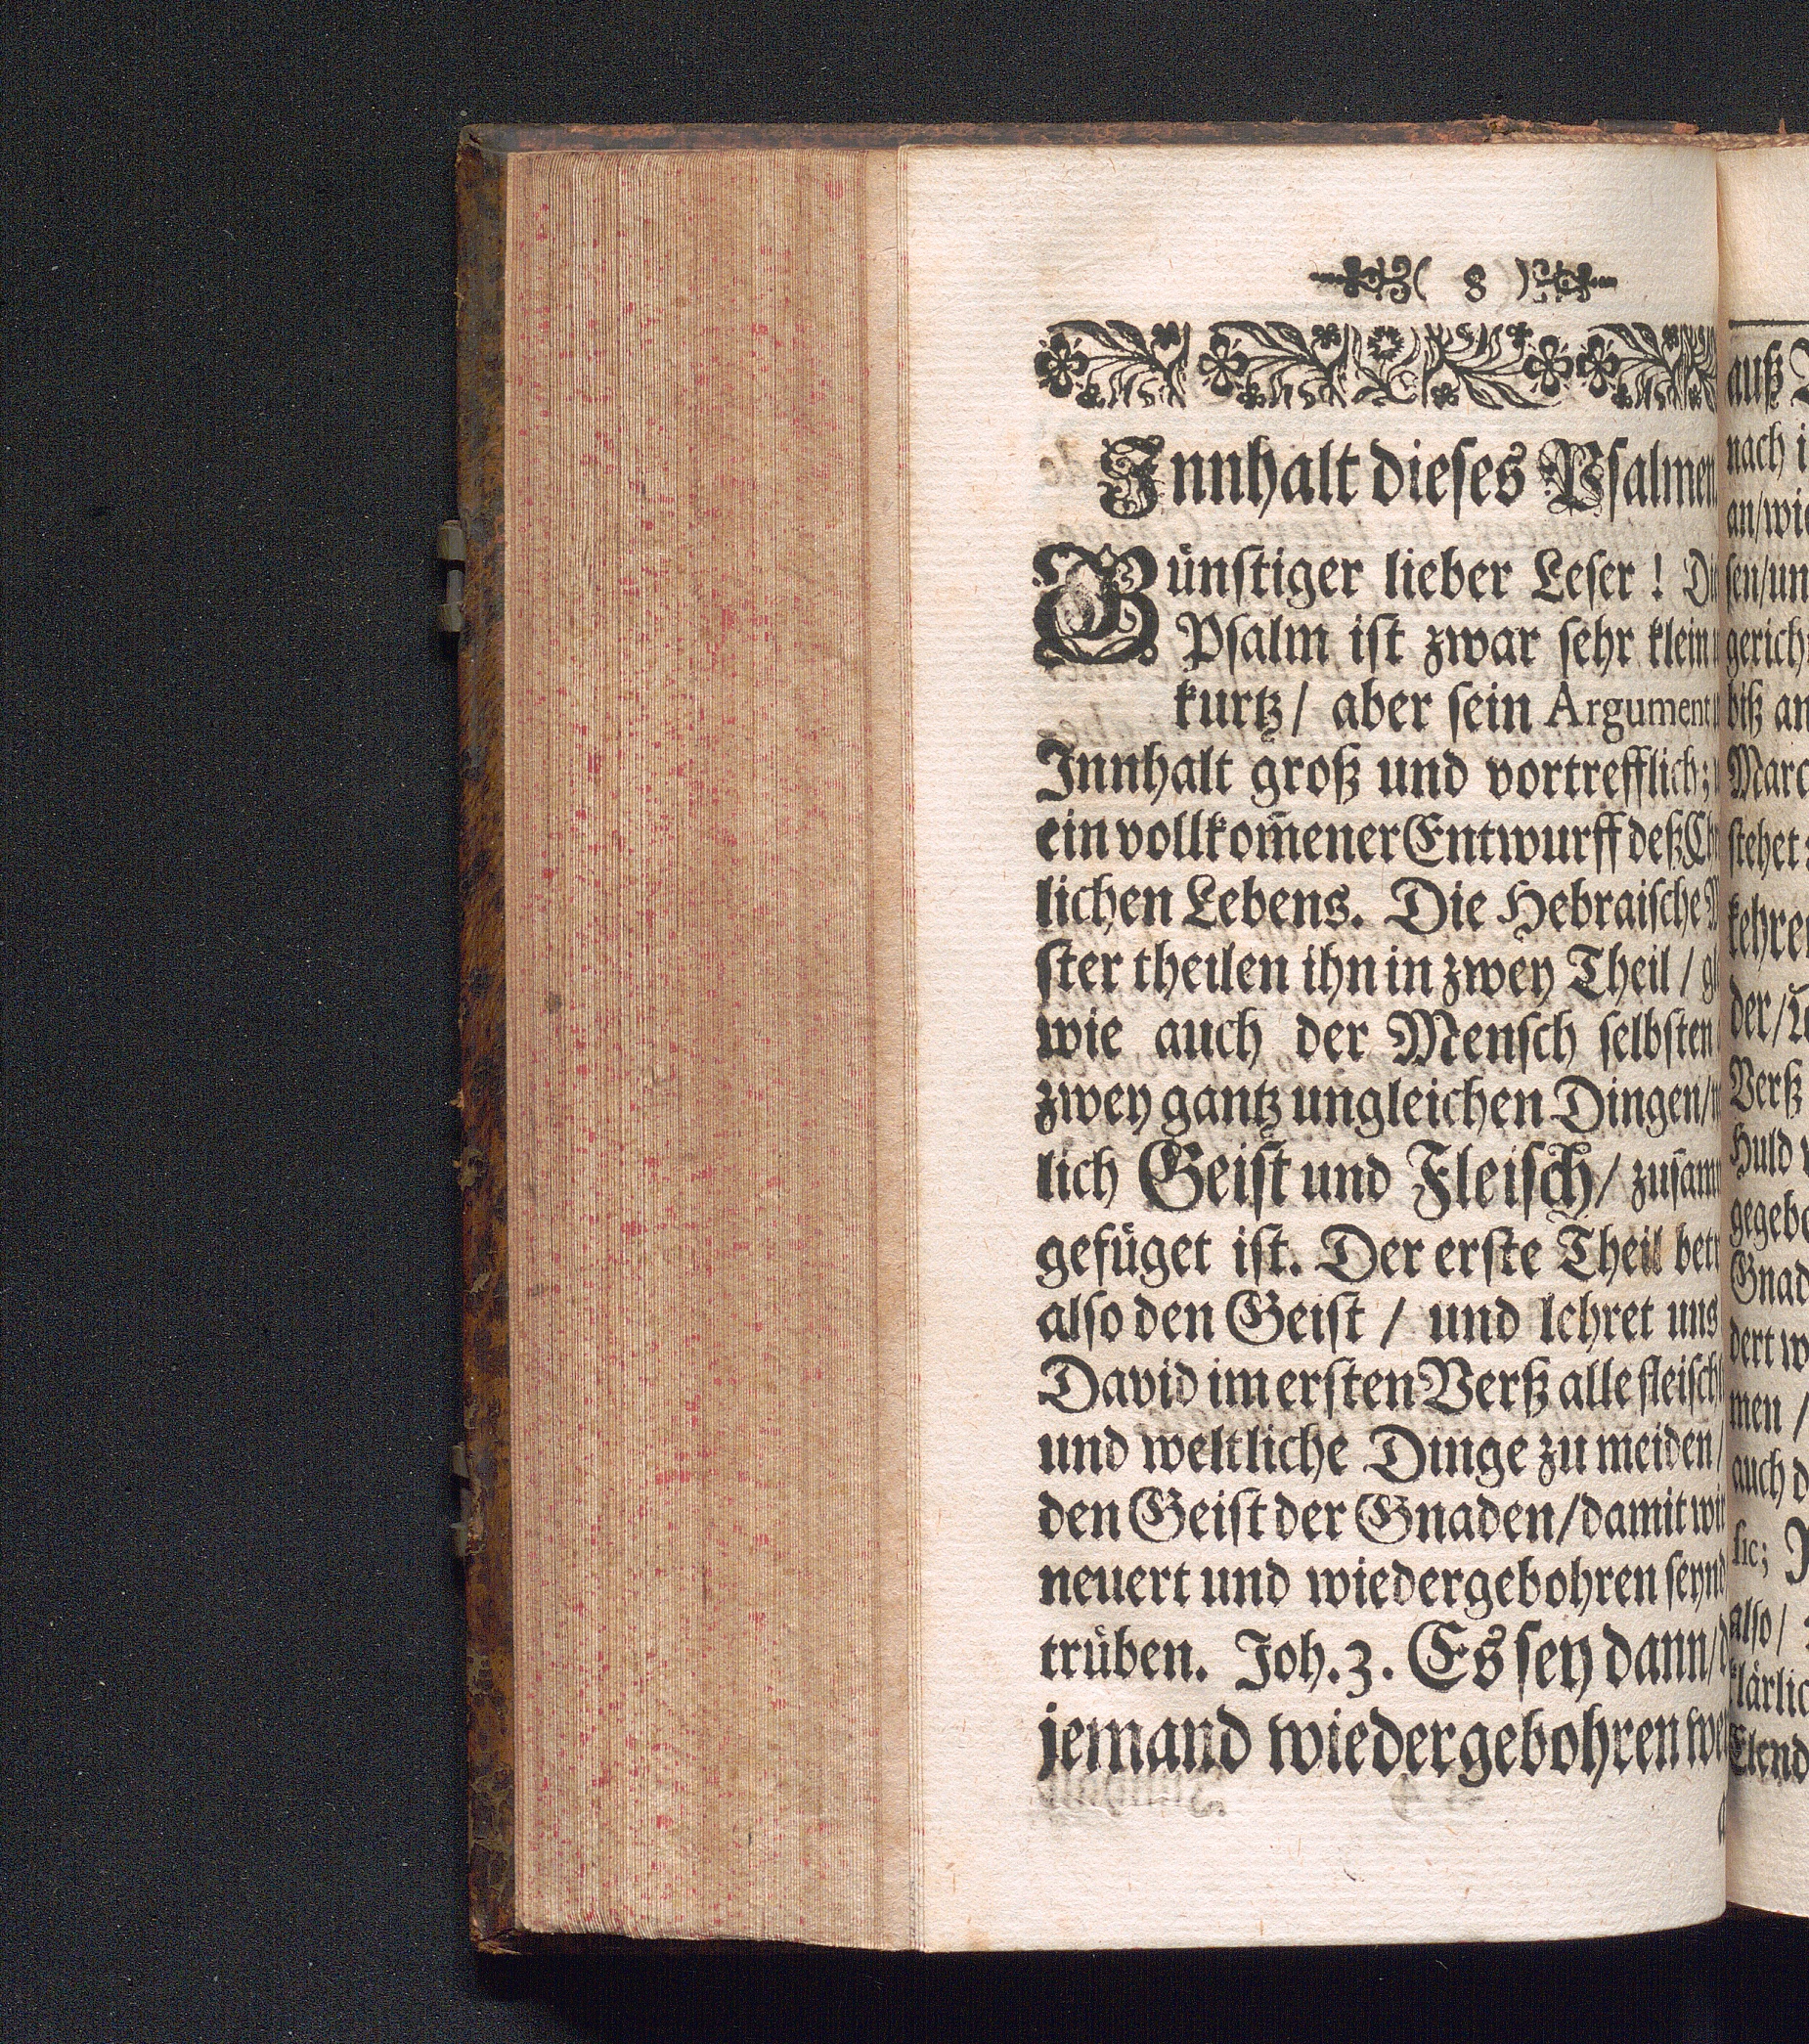 ( 8 )
Innhalt dieses Psalmen
Günstiger lieber Leser!
Psalm ist zwar sehr klein
kurtz / aber sein Argument
Innhalt groß und vortrefflich;
ein vollkom̄ener Entwurff deß
lichen Lebens. Die Hebraische
ster theilen ihn in zwey Theil /
wie auch der Mensch selbsten
zwey gantz ungleichen Dingen /
lich Geist und Fleisch / zusam
gefüget ist. Der erste Theil
also den Geist / und lehret uns
David im ersten Verß alle fleisch
und weltliche Dinge zu meiden /
den Geist der Gnaden / damit wir
neuert und wiedergebohren seynd
trüben. Joh. 3. Es sey dann /
jemand wiedergebohren
auß
nach
an / wie
sen / un
gerich
biß an
Marc
stehet
kehren
der /
Verß
Huld
gegebe
Gnad
dert
men /
auch
sic;
also /
klärlic
Elend